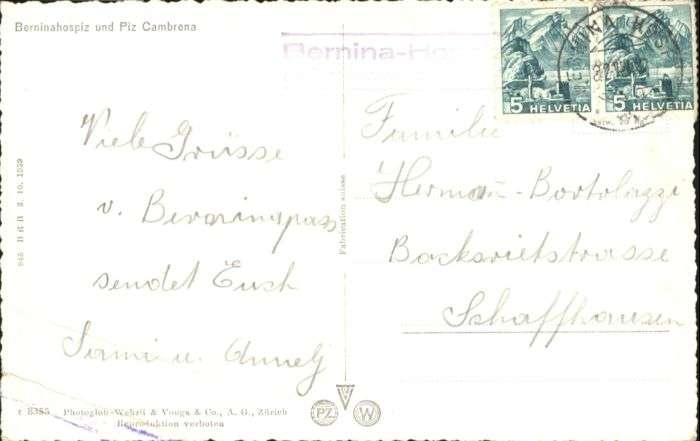 Berninahospiz und Piz Cambrena
Bernina-Hos
5 HELVETIA
5 HELVETIA
Viele Grüsse
v. Berninapass
sendet Euch
u. Annely
945 B & B 3. 10. 1939
Fabrication suisse
Familie
Hermann-Bortolazzi
Bocksrietstrasse
Schaffhausen
r 8385 Photoglob-Wehrli & Vouga & Co., A. G., Zürich
Reproduktion verboten
PZ
W